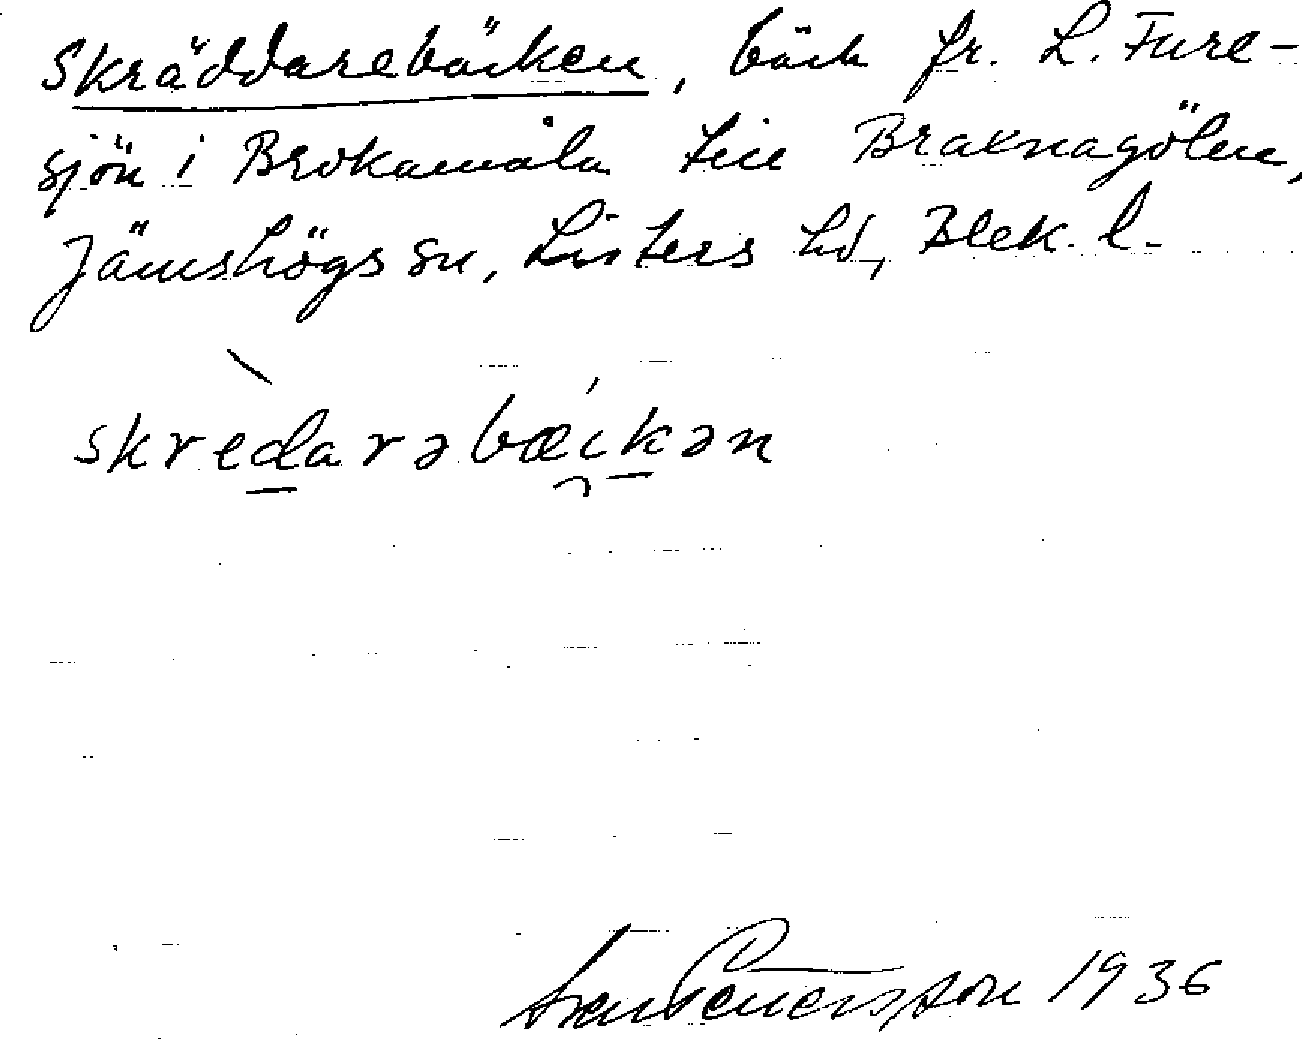 Skräddarebäcken, bäck fr. L. Fure-
sjön i Brokamåla till Braknagölen,
Jämshögs sn, Listers hd, Blek. l.
skredarəbæi̯kən
Sven Benersson 1936